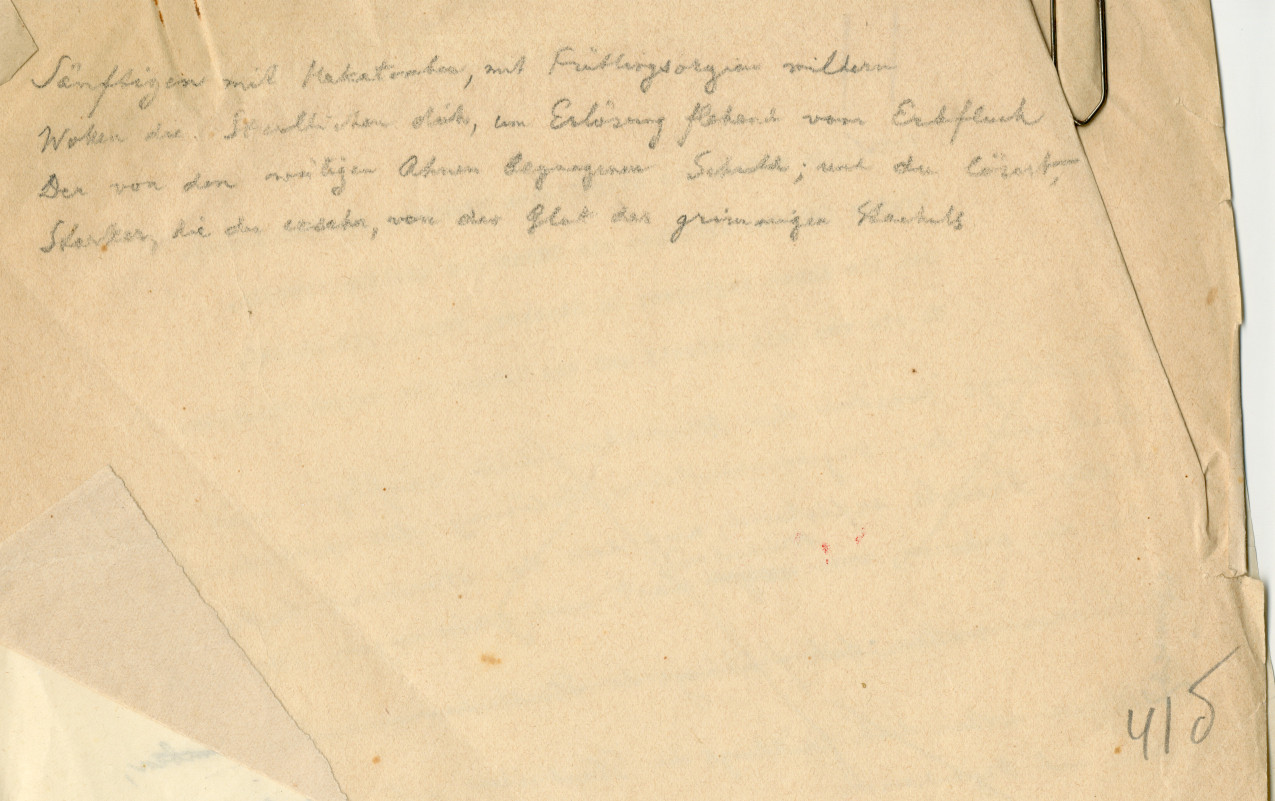 Sänftigen mit Hekatomben, mit Frühlingsorgien mildern
Wollen die Sterblichen dich, um Erlösung flehend vom Erbfluch
Der von den Ahnen begangenen Schuld; und du lösest,
Starker, die du, von der Glut des grimmigen Stachels
41б